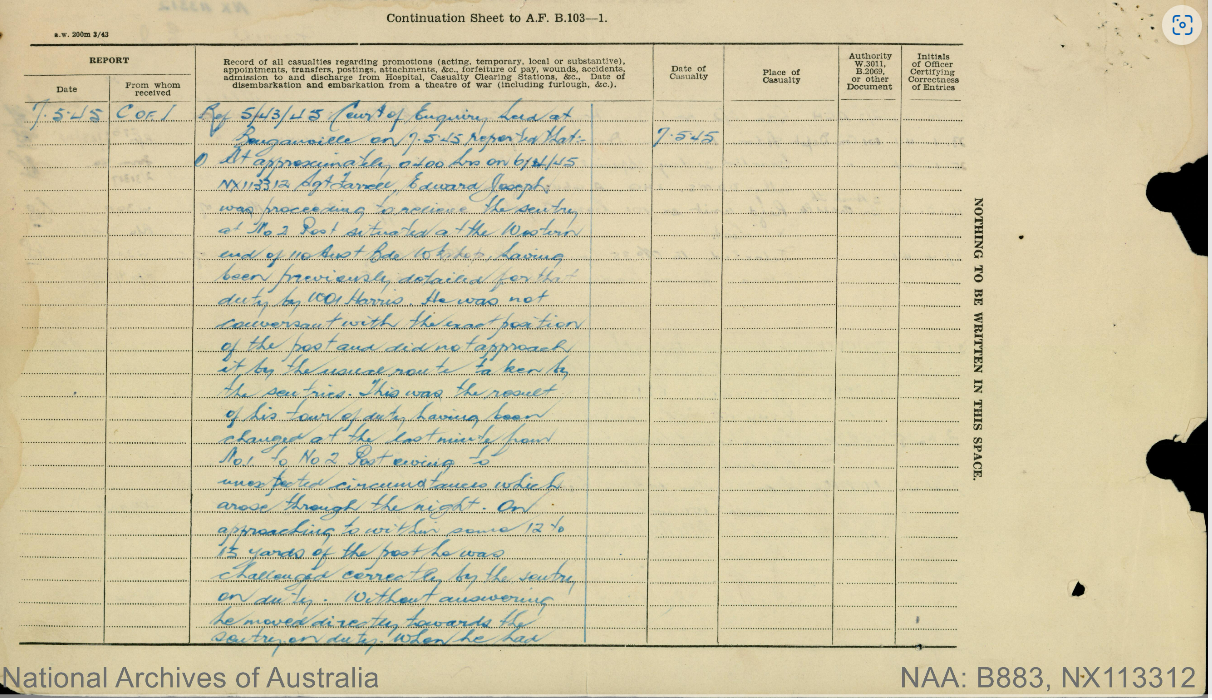 Continuation Sheet to A.F. B.103—1.
a.w. 200m 3/43
REPORT
Date
From whom received
Record of all casualties regarding promotions (acting, temporary, local or substantive),
appointments, transfers, postings, attachments, &c., forfeiture of pay, wounds, accidents,
admission to and discharge from Hospital, Casualty Clearing Stations, &c., Date of
disembarkation and embarkation from a theatre of war (including furlough, &c.).
Date of Casualty
Place of Casualty
Authority W.3011, B.2069, or other Document
Initials of Officer Certifying Correctness of Entries
7.5.45 C of I Ref 5/43/45 Court of Enquiry held at
Bougainville on 7.5.45 reported that:- 7.5.45
At approximately 0200 hrs on 6/4/45
NX113312 Sgt Farrell, Edward Joseph,
was proceeding to relieve the sentry
at No 2 Post situated at the Western
end of 110 Aust Bde Wkshop, having
been previously detailed for that
duty by WO1 Harris. He was not
conversant with the exact position
of the post and did not approach
it by the usual route taken by
the sentries. This was the result
of his tour of duty having been
changed at the last minute from
No 1 to No 2 Post owing to
unexpected circumstances which
arose through the night. On
approaching to within some 12 to
15 yards of the post he was
challenged correctly by the sentry
on duty. Without answering
he moved directly towards the
sentry on duty. When he had
NOTHING TO BE WRITTEN IN THIS SPACE.
National Archives of Australia
NAA: B883, NX113312